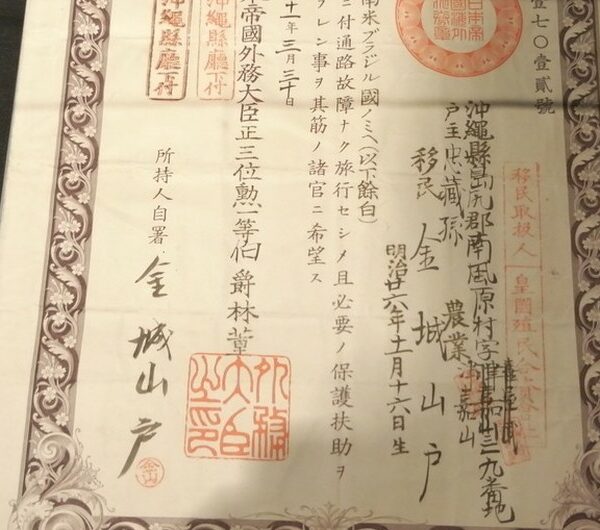 壹七〇壹貳號
移民取扱人 皇國殖民會社
沖繩縣島尻郡南風原村字津嘉山三九番地
戸主忠藏孫 農業
移民 金城山戸
明治廿六年十一月十六日生
南米ブラジル國ノミヘ(以下餘白)
ニ付通路故障ナク旅行セシメ且必要ノ保護扶助ヲ
ヲレン事ヲ其筋ノ諸官ニ希望ス
十一年三月三十日
帝國外務大臣正三位勲一等伯爵林董
外務大臣之印
沖繩縣廳下付
沖繩縣廳下付
所持人自署 金城山戸